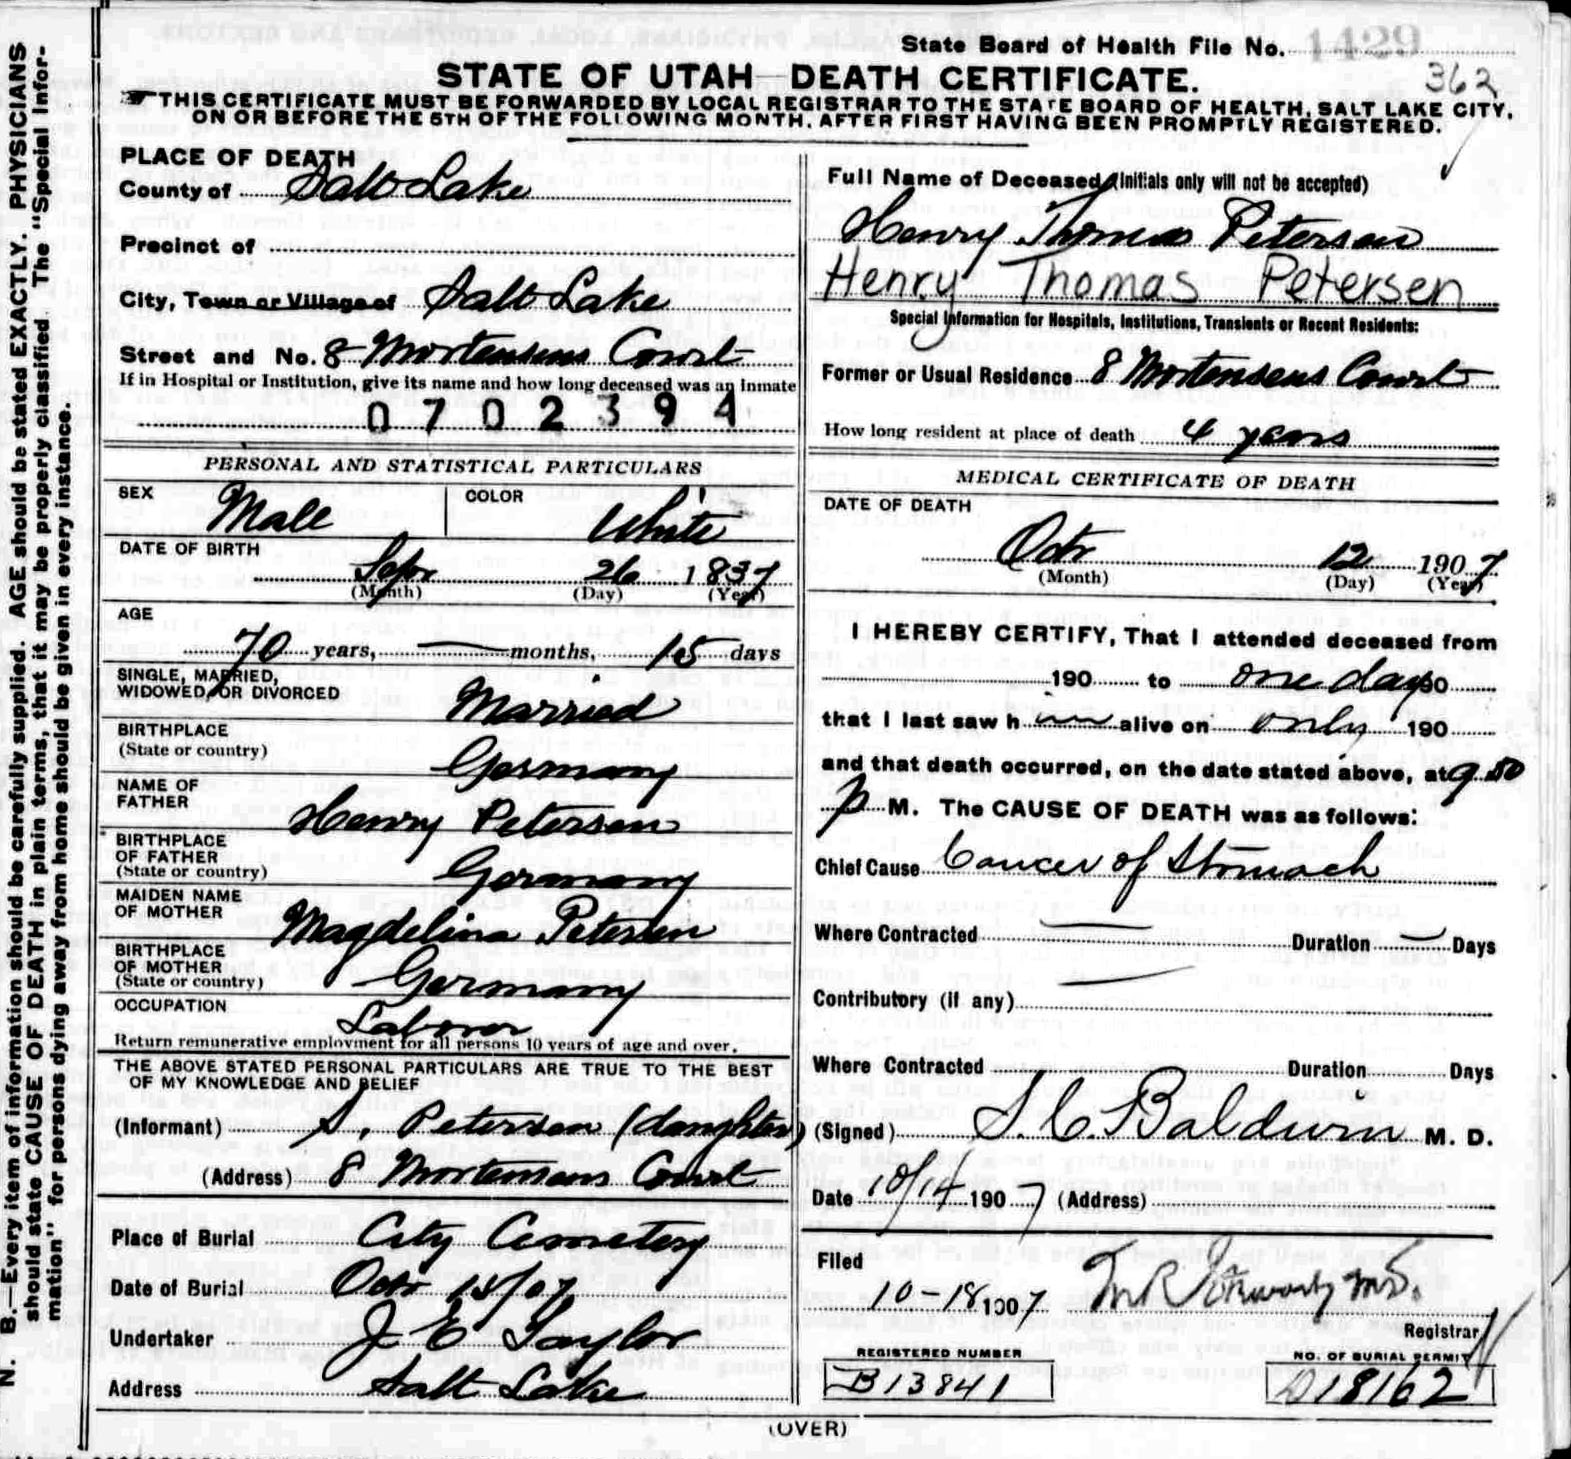 N. B.—Every item of information should be carefully supplied. AGE should be stated EXACTLY. PHYSICIANS
should state CAUSE OF DEATH in plain terms, that it may be properly classified. The "Special Infor-
mation" for persons dying away from home should be given in every instance.
State Board of Health File No. 1429
362
STATE OF UTAH—DEATH CERTIFICATE.
THIS CERTIFICATE MUST BE FORWARDED BY LOCAL REGISTRAR TO THE STATE BOARD OF HEALTH, SALT LAKE CITY,
ON OR BEFORE THE 5TH OF THE FOLLOWING MONTH, AFTER FIRST HAVING BEEN PROMPTLY REGISTERED.
PLACE OF DEATH
County of Salt Lake
Precinct of
City, Town or Village of Salt Lake
Street and No. 8 Mortensens Court
If in Hospital or Institution, give its name and how long deceased was an inmate
0702394
PERSONAL AND STATISTICAL PARTICULARS
SEX Male COLOR White
DATE OF BIRTH
Sepr 26 1837
(Month) (Day) (Year)
AGE
70 years, — months, 15 days
SINGLE, MARRIED,
WIDOWED, OR DIVORCED Married
BIRTHPLACE
(State or country) Germany
NAME OF
FATHER Henry Petersen
BIRTHPLACE
OF FATHER
(State or country) Germany
MAIDEN NAME
OF MOTHER Magdelina Petersen
BIRTHPLACE
OF MOTHER
(State or country) Germany
OCCUPATION
Laborer
Return remunerative employment for all persons 10 years of age and over.
THE ABOVE STATED PERSONAL PARTICULARS ARE TRUE TO THE BEST
OF MY KNOWLEDGE AND BELIEF
(Informant) S. Petersen (daughter)
(Address) 8 Mortensens Court
Place of Burial City Cemetery
Date of Burial Octr 15/07
Undertaker J E Taylor
Address Salt Lake
Full Name of Deceased (Initials only will not be accepted)
Henry Thomas Petersen
Henry Thomas Petersen
Special Information for Hospitals, Institutions, Transients or Recent Residents:
Former or Usual Residence 8 Mortensens Court
How long resident at place of death 4 years
MEDICAL CERTIFICATE OF DEATH
DATE OF DEATH
Octr 12 1907
(Month) (Day) (Year)
I HEREBY CERTIFY, That I attended deceased from
190 to one day 190
that I last saw h im alive on only 190
and that death occurred, on the date stated above, at 9.50
p M. The CAUSE OF DEATH was as follows:
Chief Cause Cancer of Stomach
Where Contracted — Duration — Days
Contributory (if any) —
Where Contracted Duration Days
(Signed) S. C. Baldwin M. D.
Date 10/14 1907 (Address)
Filed
10-18 1907
Registrar
REGISTERED NUMBER NO. OF BURIAL PERMIT
B13841 D18162
(OVER)